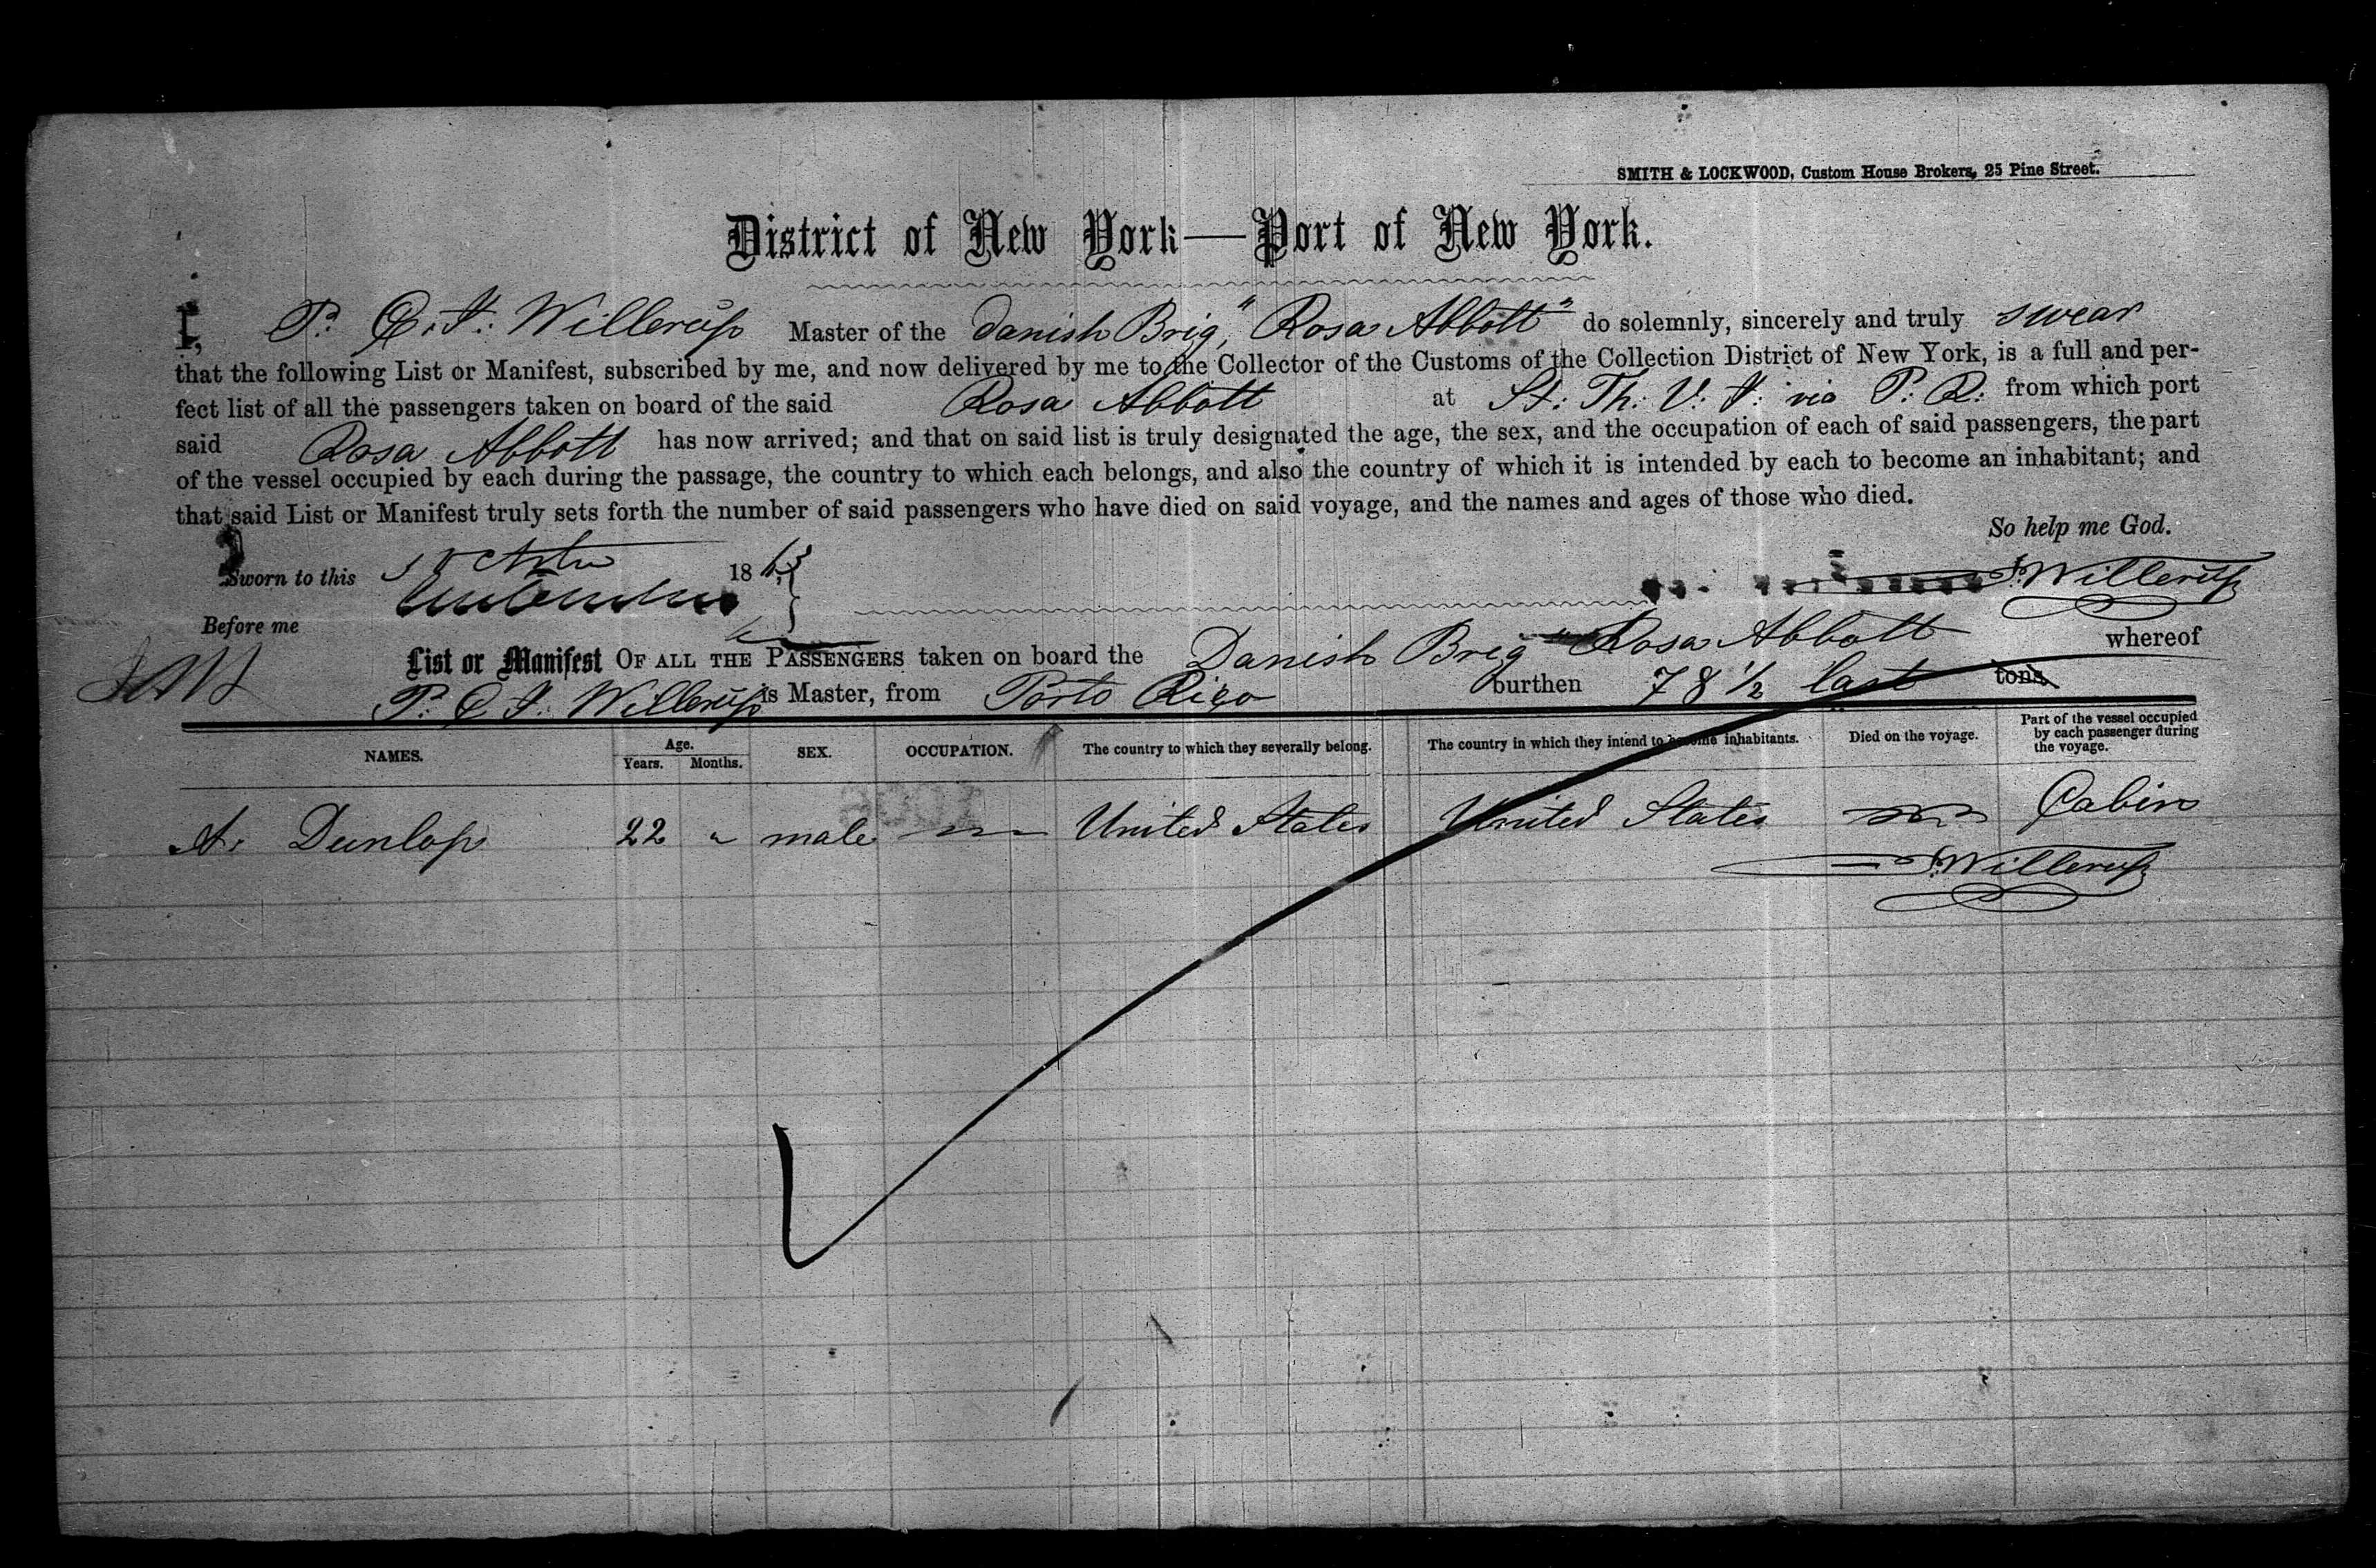 SMITH & LOCKWOOD, Custom House Brokers, 25 Pine Street.
District of New York—Port of New York.
I, P. C. F. Willerup Master of the Danish Brig "Rosa Abbott" do solemnly, sincerely and truly swear
that the following List or Manifest, subscribed by me, and now delivered by me to the Collector of the Customs of the Collection District of New York, is a full and per-
fect list of all the passengers taken on board of the said Rosa Abbott at St: Th: V: I: via P: R: from which port
said Rosa Abbott has now arrived; and that on said list is truly designated the age, the sex, and the occupation of each of said passengers, the part
of the vessel occupied by each during the passage, the country to which each belongs, and also the country of which it is intended by each to become an inhabitant; and
that said List or Manifest truly sets forth the number of said passengers who have died on said voyage, and the names and ages of those who died.
So help me God.
Sworn to this 186
Willerup
Before me
List or Manifest OF ALL THE PASSENGERS taken on board the Danish Brig Rosa Abbott whereof
P. C. F. Willerup is Master, from Porto Rico burthen 78 1/2 last tons
NAMES. Age. Years. Months. SEX. OCCUPATION. The country to which they severally belong. The country in which they intend to become inhabitants. Died on the voyage. Part of the vessel occupied by each passenger during the voyage.
A. Dunlop 22 " male United States United States Cabin
Willerup